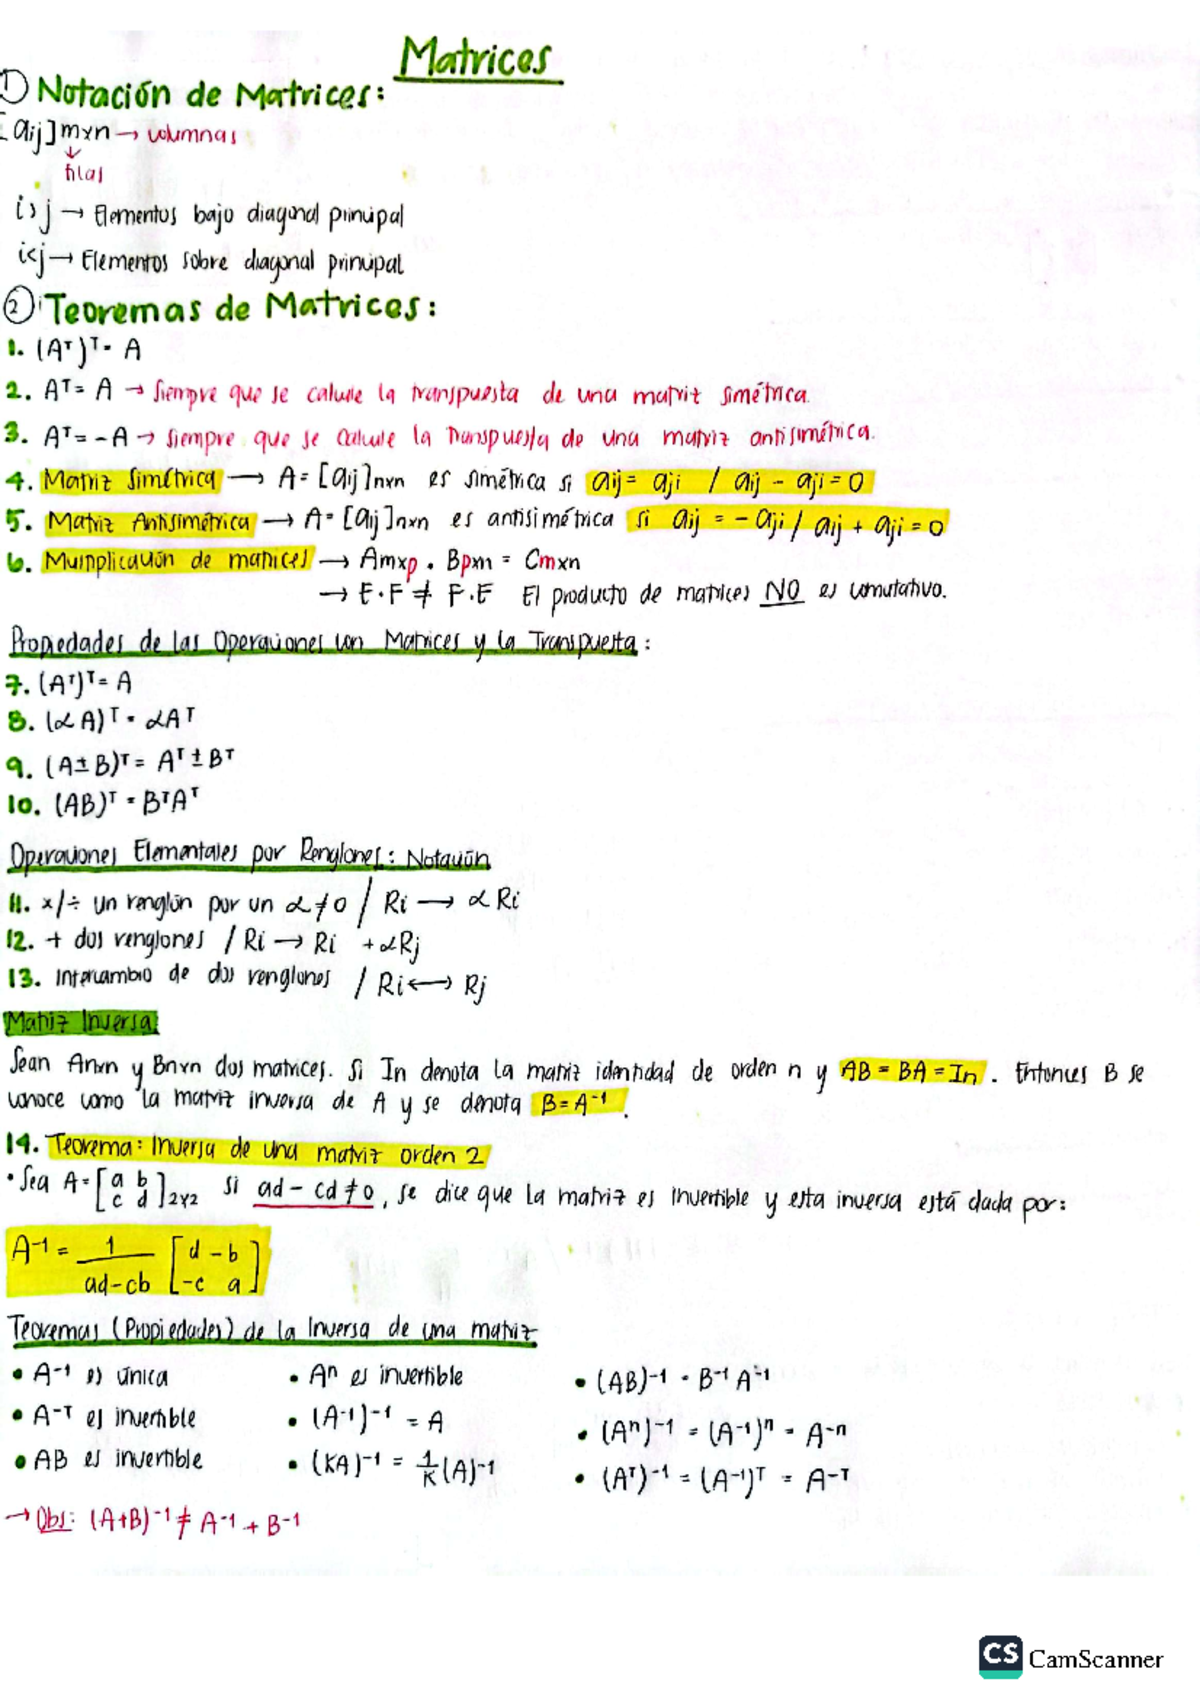 Matrices
① Notación de Matrices:
[aij]mxn → columnas
↓
filas
i>j → Elementos bajo diagonal principal
i<j → Elementos sobre diagonal principal
② Teoremas de Matrices:
1. (Aᵀ)ᵀ = A
2. Aᵀ = A → Siempre que se calcule la transpuesta de una matriz simétrica.
3. Aᵀ = -A → Siempre que se calcule la transpuesta de una matriz antisimétrica.
4. Matriz Simétrica → A = [aij]nxn es simétrica si aij = aji / aij - aji = 0
5. Matriz Antisimétrica → A = [aij]nxn es antisimétrica si aij = - aji / aij + aji = 0
6. Multiplicación de matrices → Amxp . Bpxn = Cmxn
→ E·F ≠ F·E El producto de matrices NO es conmutativo.
Propiedades de las Operaciones con Matrices y la Transpuesta:
7. (Aᵀ)ᵀ = A
8. (αA)ᵀ = αAᵀ
9. (A±B)ᵀ = Aᵀ ± Bᵀ
10. (AB)ᵀ = BᵀAᵀ
Operaciones Elementales por Renglones: Notación
11. x/÷ un renglón por un α≠0 / Ri → αRi
12. + dos renglones / Ri → Ri + αRj
13. Intercambio de dos renglones / Ri ↔ Rj
Matriz Inversa
Sean Anxn y Bnxn dos matrices. Si In denota la matriz identidad de orden n y AB = BA = In. Entonces B se
conoce como la matriz inversa de A y se denota B = A⁻¹.
14. Teorema: Inversa de una matriz orden 2
• Sea A = [a b
c d]2x2 si ad - cd ≠ 0, se dice que la matriz es invertible y esta inversa está dada por:
A⁻¹ = 1/(ad-cb) [d -b
-c a]
Teoremas (Propiedades) de la Inversa de una matriz
• A⁻¹ es única • Aⁿ es invertible • (AB)⁻¹ = B⁻¹A⁻¹
• A⁻ᵀ es invertible • (A⁻¹)⁻¹ = A • (Aⁿ)⁻¹ = (A⁻¹)ⁿ = A⁻ⁿ
• AB es invertible • (KA)⁻¹ = 1/K (A)⁻¹ • (Aᵀ)⁻¹ = (A⁻¹)ᵀ = A⁻ᵀ
→ Obs: (A+B)⁻¹ ≠ A⁻¹ + B⁻¹
CS CamScanner